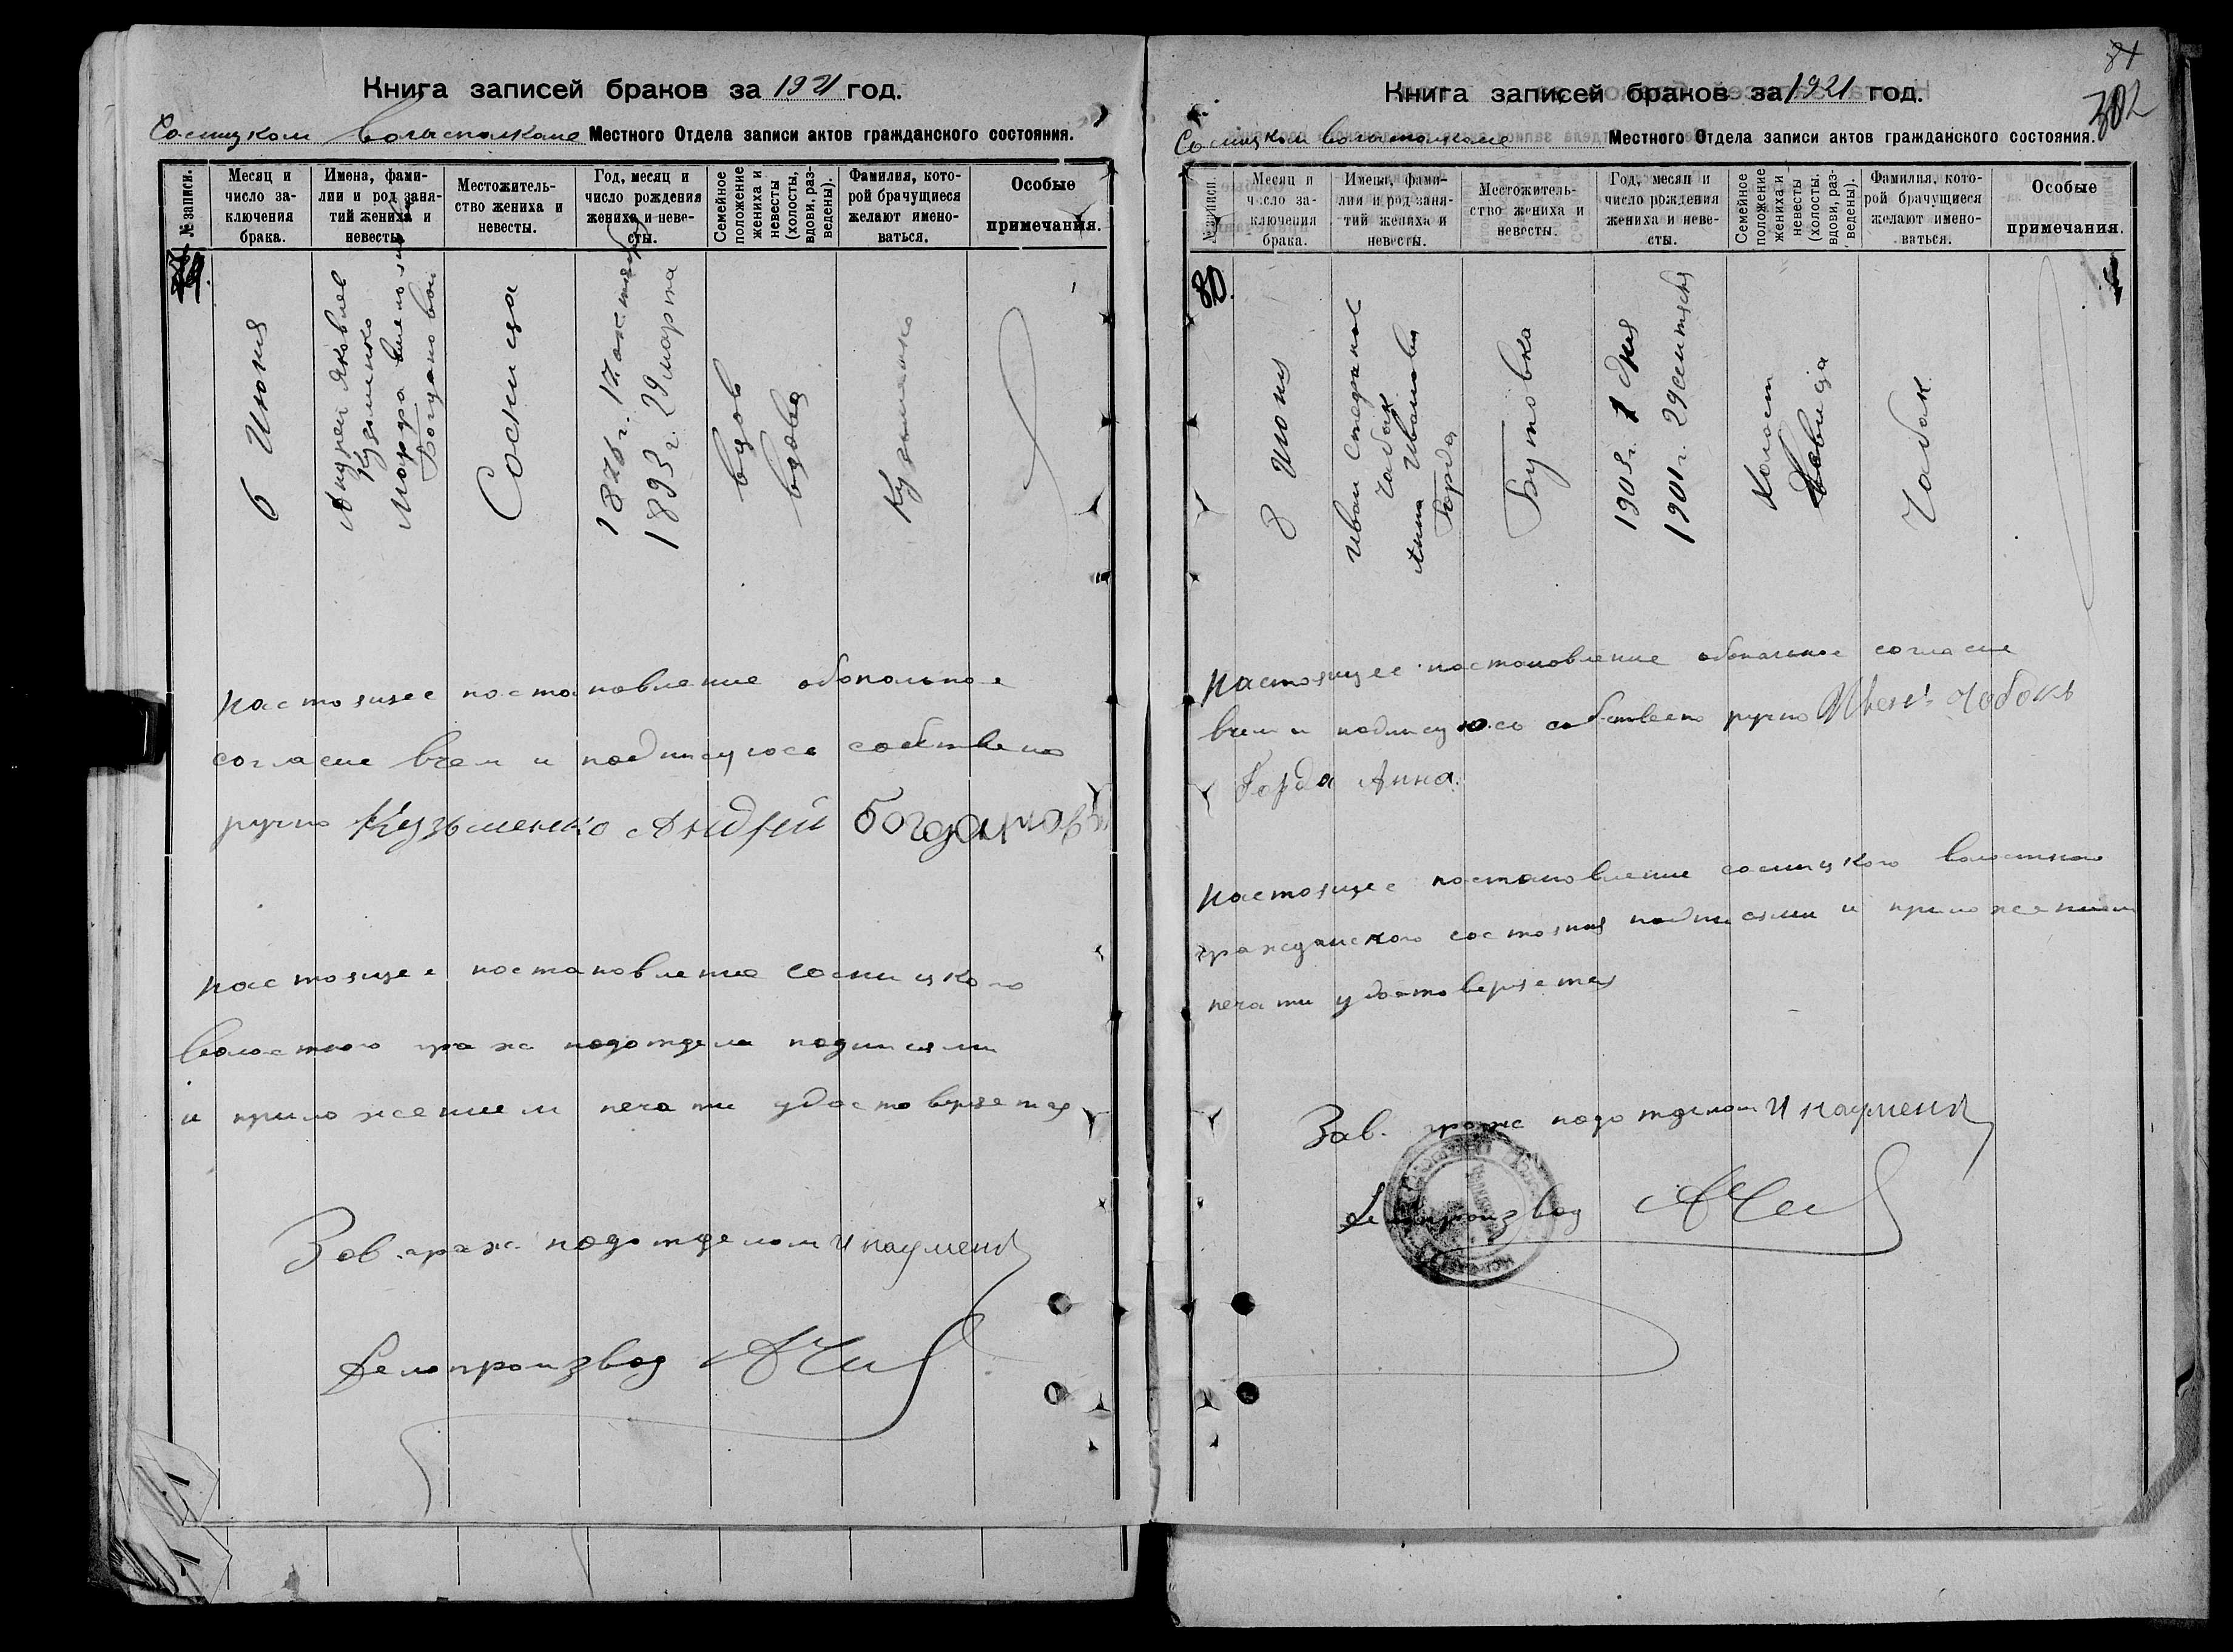 Книга записей браков за 1921 год.
Сосницком Волисполкоме Местного Отдела записи актов гражданского состояния.
№ записи.
Месяц и число заключения брака.
Имена, фамилии и род занятий жениха и невесты.
Местожительство жениха и невесты.
Год, месяц и число рождения жениха и невесты.
Семейное положение жениха и невесты (холосты, вдовы, разведены).
Фамилия, которой брачущиеся желают именоваться.
Особые примечания.
79.
6 Июня
Андрей Яковлев
Кузьменко
Марфа
Богдановой
Сосница
1876 г. 17 октяб
1893 г. 29 марта
вдов
вдова
Кузьменко
Настоящее постановление обопольное
согласие вчем и подписуюсь собствено
ручно Кузьменко Андрей Богданова
Настоящее постановление Сосницкого
Волостного граж подотдела подписями
и приложением печати удостоверяется
Зав. граж. подотделом И Науменк
Делопроизвод
Книга записей браков за 1921 год.
Сосницком Волисполкоме Местного Отдела записи актов гражданского состояния.
81
302
№ записи.
Месяц и число заключения брака.
Имена, фамилии и род занятий жениха и невесты.
Местожительство жениха и невесты.
Год, месяц и число рождения жениха и невесты.
Семейное положение жениха и невесты (холосты, вдовы, разведены).
Фамилия, которой брачущиеся желают именоваться.
Особые примечания.
80.
8 Июня
Иван Стефанов
Чабак
Анна Иванова
Горда
Бутовка
1901 г. 29 сентября
Холост
Девица
Чабак
Настоящее постановление обопольное согласие
вчем и подписуюсь собствено ручно Иван Чобокъ
Горда Анна.
Настоящее постановление сосницкого волостного
гражданского состояния подписями и приложением
печати удостоверяется
Зав. граж подотделом И Науменк
Делопроизвод